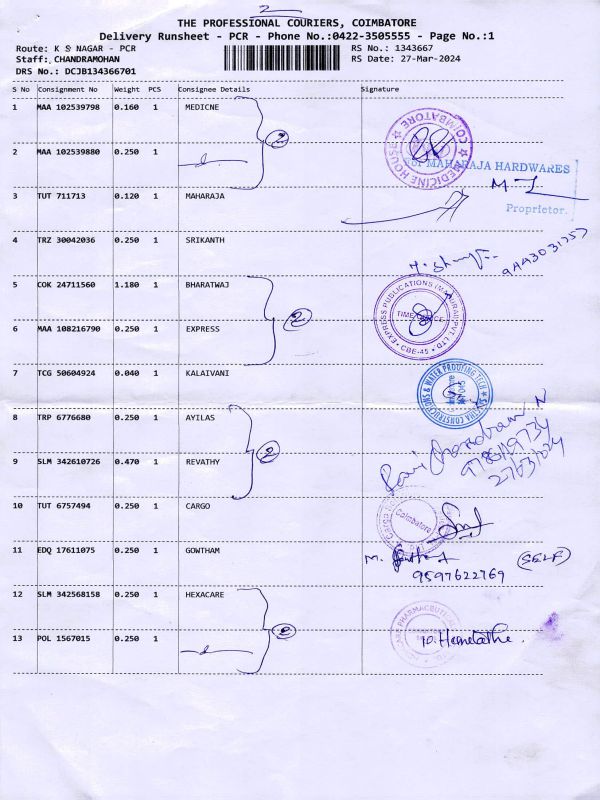 2
THE PROFESSIONAL COURIERS, COIMBATORE
Delivery Runsheet - PCR - Phone No.:0422-3505555 - Page No.:1
Route: K S NAGAR - PCR
RS No.: 1343667
Staff: CHANDRAMOHAN
RS Date: 27-Mar-2024
DRS No.: DCJB134366701
S No Consignment No Weight PCS Consignee Details Signature
1 MAA 102539798 0.160 1 MEDICNE
2
COIMBATORE
MEDICINE HOUSE
2 MAA 102539880 0.250 1
For MAHARAJA HARDWARES
3 TUT 711713 0.120 1 MAHARAJA
Proprietor.
4 TRZ 30042036 0.250 1 SRIKANTH
5 COK 24711560 1.180 1 BHARATWAJ
2
EXPRESS PUBLICATIONS (MADURAI) PVT. LTD.
CBE-45
6 MAA 108216790 0.250 1 EXPRESS
7 TCG 50604924 0.040 1 KALAIVANI
CONSTRUCTIONS & WATER PROOFING TECH
8 TRP 6776680 0.250 1 AYILAS
2
9 SLM 342610726 0.470 1 REVATHY
27/03/2024
10 TUT 6757494 0.250 1 CARGO
Coimbatore
11 EDQ 17611075 0.250 1 GOWTHAM
(SELF)
9597622769
12 SLM 342568158 0.250 1 HEXACARE
2
13 POL 1567015 0.250 1